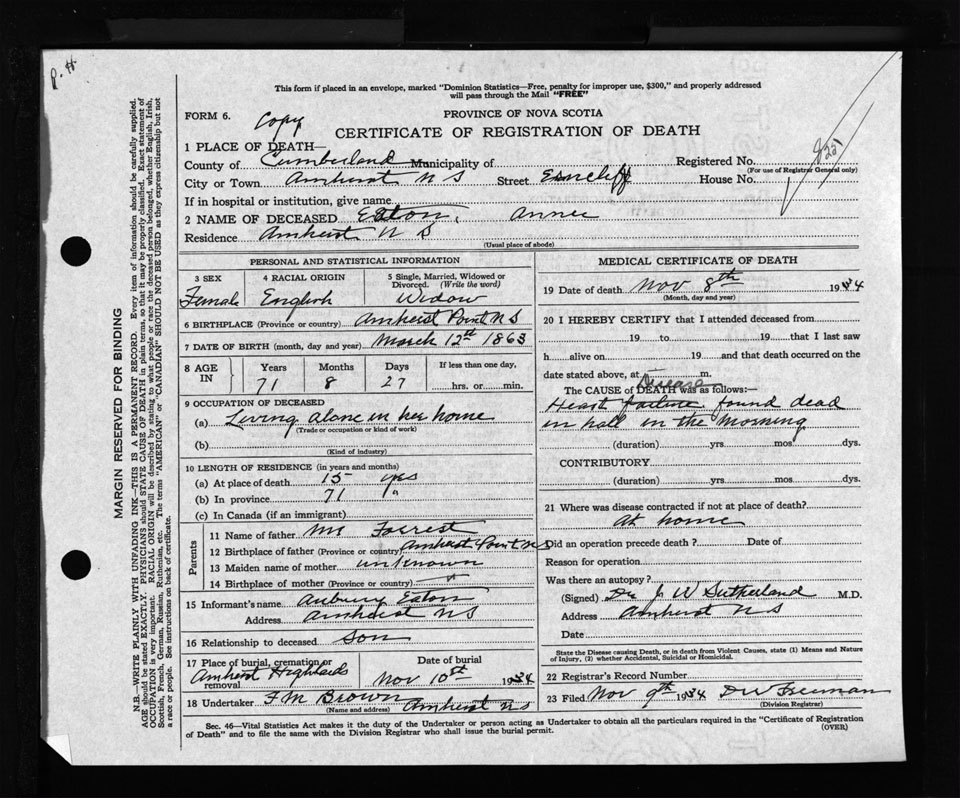 P. H
This form if placed in an envelope, marked "Dominion Statistics—Free, penalty for improper use, $300," and properly addressed
will pass through the Mail "FREE"
FORM 6. Copy PROVINCE OF NOVA SCOTIA
CERTIFICATE OF REGISTRATION OF DEATH
1 PLACE OF DEATH—
County of Cumberland Municipality of Registered No.
(For use of Registrar General only)
City or Town Amherst N S Street House No.
If in hospital or institution, give name
2 NAME OF DECEASED Eaton, Annee
Residence Amherst N S
(Usual place of abode)
PERSONAL AND STATISTICAL INFORMATION
3 SEX 4 RACIAL ORIGIN 5 Single, Married, Widowed or
Divorced. (Write the word)
Female English Widow
6 BIRTHPLACE (Province or country) Amherst Point N S
7 DATE OF BIRTH (month, day and year) March 12th 1863
8 AGE IN Years Months Days If less than one day,
71 8 27 hrs. or min.
9 OCCUPATION OF DECEASED
(a) Living alone in her home
(Trade or occupation or kind of work)
(b)
(Kind of industry)
10 LENGTH OF RESIDENCE (in years and months)
(a) At place of death 15 yrs
(b) In province 71 "
(c) In Canada (if an immigrant)
Parents
11 Name of father Mr Forrest
12 Birthplace of father (Province or country) Amherst Point N S
13 Maiden name of mother unknown
14 Birthplace of mother (Province or country) "
15 Informant's name Aubury Eaton
Address Amherst N S
16 Relationship to deceased Son
17 Place of burial, cremation or removal Date of burial
Amherst Highlands Nov 10th 1934
18 Undertaker F M Brown Amherst N S
(Name and address)
MEDICAL CERTIFICATE OF DEATH
19 Date of death Nov 8th 1934
(Month, day and year)
20 I HEREBY CERTIFY that I attended deceased from
19 to 19 that I last saw
h alive on 19 and that death occurred on the
date stated above, at m.
Disease
The CAUSE of DEATH was as follows:—
Heart failure found dead
in hall in the morning
(duration) yrs. mos. dys.
CONTRIBUTORY
(duration) yrs. mos. dys.
21 Where was disease contracted if not at place of death?
At home
Did an operation precede death ? Date of
Reason for operation
Was there an autopsy?
(Signed) Dr J W Sutherland M.D.
Address Amherst N S
Date
State the Disease causing Death, or in death from Violent Causes, state (1) Means and Nature
of Injury, (2) whether Accidental, Suicidal or Homicidal.
22 Registrar's Record Number
23 Filed Nov 9th 1934 D W Freeman
(Division Registrar)
Sec. 46—Vital Statistics Act makes it the duty of the Undertaker or person acting as Undertaker to obtain all the particulars required in the "Certificate of Registration
of Death" and to file the same with the Division Registrar who shall issue the burial permit. (OVER)
MARGIN RESERVED FOR BINDING
N.B.—WRITE PLAINLY WITH UNFADING INK—THIS IS A PERMANENT RECORD. Every item of information should be carefully supplied.
AGE should be stated EXACTLY. PHYSICIANS should STATE CAUSE OF DEATH in plain terms, so that it may be properly classified. Exact statement of
OCCUPATION is very important. RACIAL ORIGIN will be described by stating to what people or race the deceased person belonged, whether English, Irish,
Scottish, French, German, Russian, Ruthenian, etc. The terms "AMERICAN" or "CANADIAN" SHOULD NOT BE USED as they express citizenship but not
a race or people. See instructions on back of certificate.